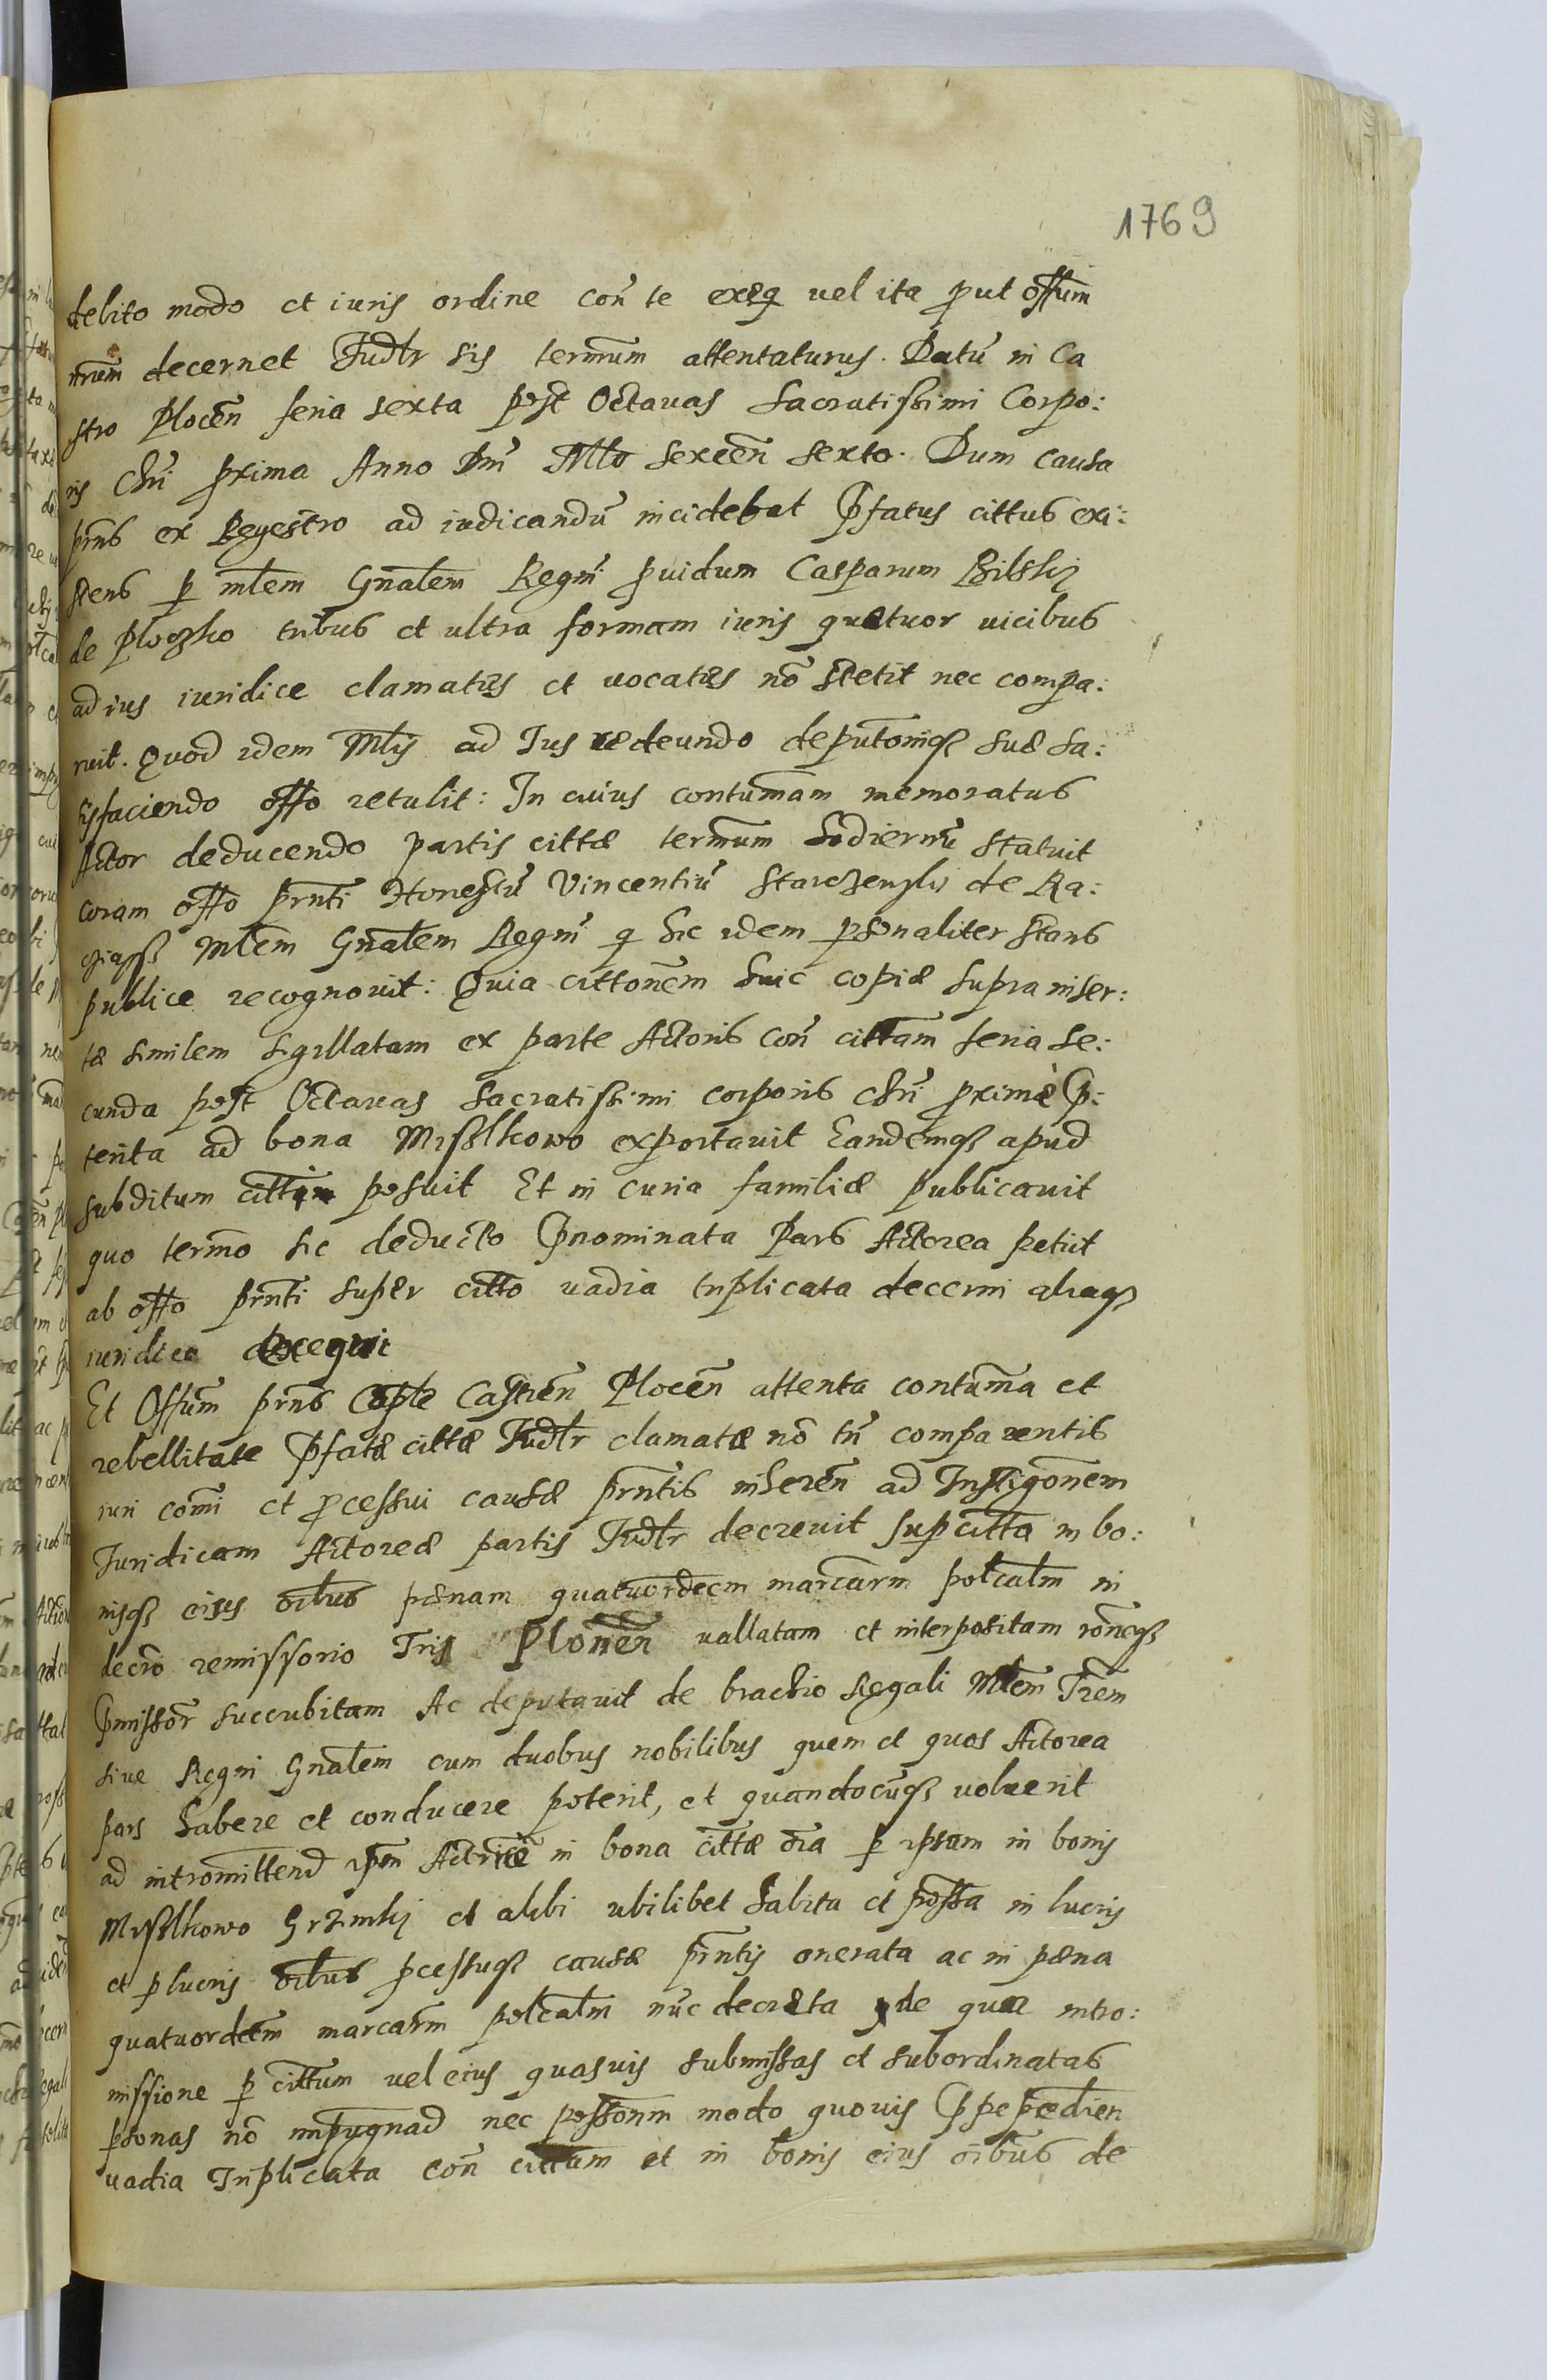 1769
debito modo et iuris ordine con̄ te exeq̄ uel ita ꝓut off̄um
nr̄um decernet Iudl̄r sis term̄num attentaturus. Datū in Ca
stro Plocen̄ feria sexta post Octauas Sacratissimi Corpo:
ris Chr̄i proxima Anno Dn̄i Mll̄o sexcen̄ sexto. Dum causa
prn̄s ex Regestro ad iudicandū incidebat Praefatus cittus exi:
stens p̄ mīlem Gn̄alem Regni ꝓuidum Casparum Bilsky
de Ploczko tribus et ultra formam iuris quatuor uicibus
ad ius iuridice clamatus et uocatus nō stetit nec compa:
ruit. Quod idem Mlis̄ ad Ius redeundo deputōniqȝ suæ sa:
tisfaciendo offō retulit: In cuius contumām memoratus
Actor deducendo partis cittæ term̄num hodiernū statuit
coram offō prn̄ti Honestū Vincentiū Starczewsky de Ra:
Mlēm Gn̄alem Regni q̄ hic idem personaliter stans
publice recognouit: Quia cittōnem huic copiæ supra inser:
tæ similem sigillatam ex parte Actoris con̄ cittam̄ feria se:
cunda post Octauas Sacratissimi corporis Chr̄i proximæ præ:
terita ad bona Misslkowo exportauit Eandemqȝ apud
subditum posuit Et in curia familiæ publicauit
quo termīno sic deducto Prænominata Pars Actorea petiit
ab offō prn̄ti super cittō uadia triplicata decerni aliaqȝ
iuridice exequi
Et Offūm prn̄s Capłe Castren̄ Plocen̄ attenta contumā et
rebellitate Præfatæ cittæ Iudl̄r clamatæ nō tn̄ comparentis
iuri com̄i et ꝓcessui causæ prn̄tis inheren̄ ad Instigōnem
Iuridicam Actoreæ partis Iudl̄r decreuit sup cittā in bo:
nisqȝ eius oībus pænam quatuordecim marcarm̄ polcalm̄ in
decrō remissorio Tris̄ Plonen̄ uallatam et interpositam rōneqȝ
Præmissor̄ succubitam Ac deputauit de brachio Regali Mlēm Trēm
siue Regni Gn̄alem cum duobus nobilibus quem et quos Actorea
pars habere et conducere poterit, et quandocunqȝ uoluerit
ad intromittend̄ ipm̄ Actorem in bona cittæ oīa p̄ ipsam in bonis
Misslkowo Grzimki et alibi ubilibet habita et possā in lucris
et p̄ lucris oībus ꝓcessuqȝ causæ prn̄tis onerata ac in pæna
quatuordecīm marcarm̄ polcalm̄ nūc decreta de qua intro:
missione p̄ cittum uel eius quasuis submissas et subordinatas
psonas nō impugnad̄ nec possōnm modo quouis
uadia Triplicata con̄ cittam et in bonis eius oībus de